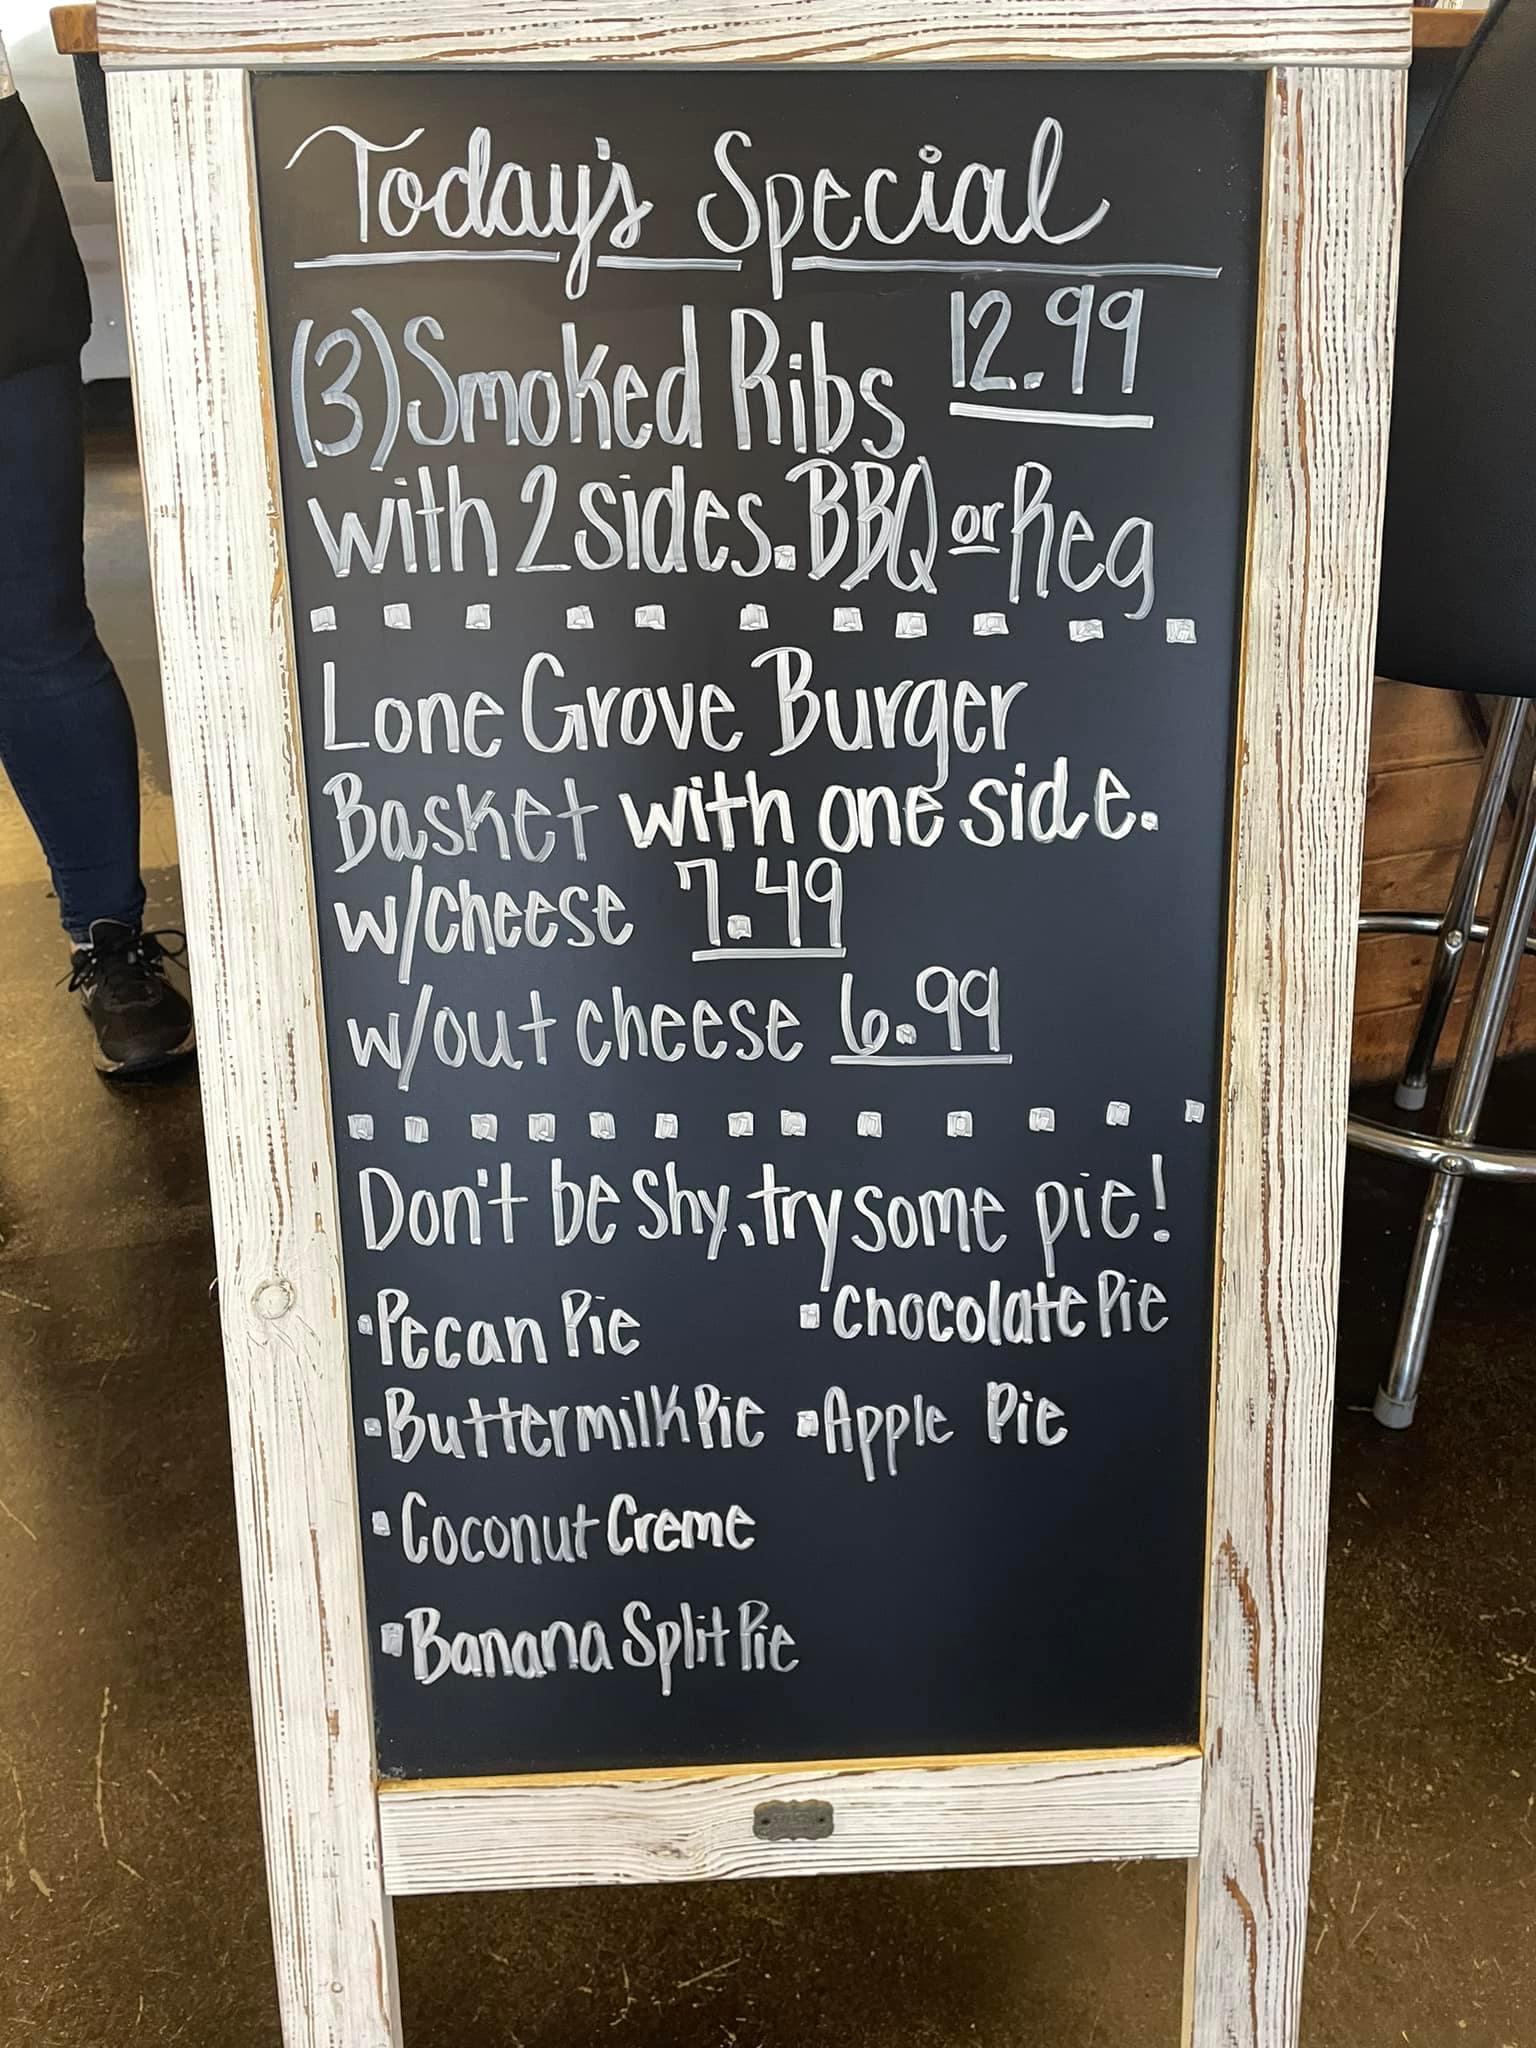 Today's Special
(3) Smoked Ribs 12.99
with 2 sides. BBQ or Reg
Lone Grove Burger
Basket with one side.
w/cheese 7.49
w/out cheese 6.99
Don't be shy, try some pie!
▪Pecan Pie ▪Chocolate Pie
▪Buttermilk Pie ▪Apple Pie
▪Coconut Creme
▪Banana Split Pie